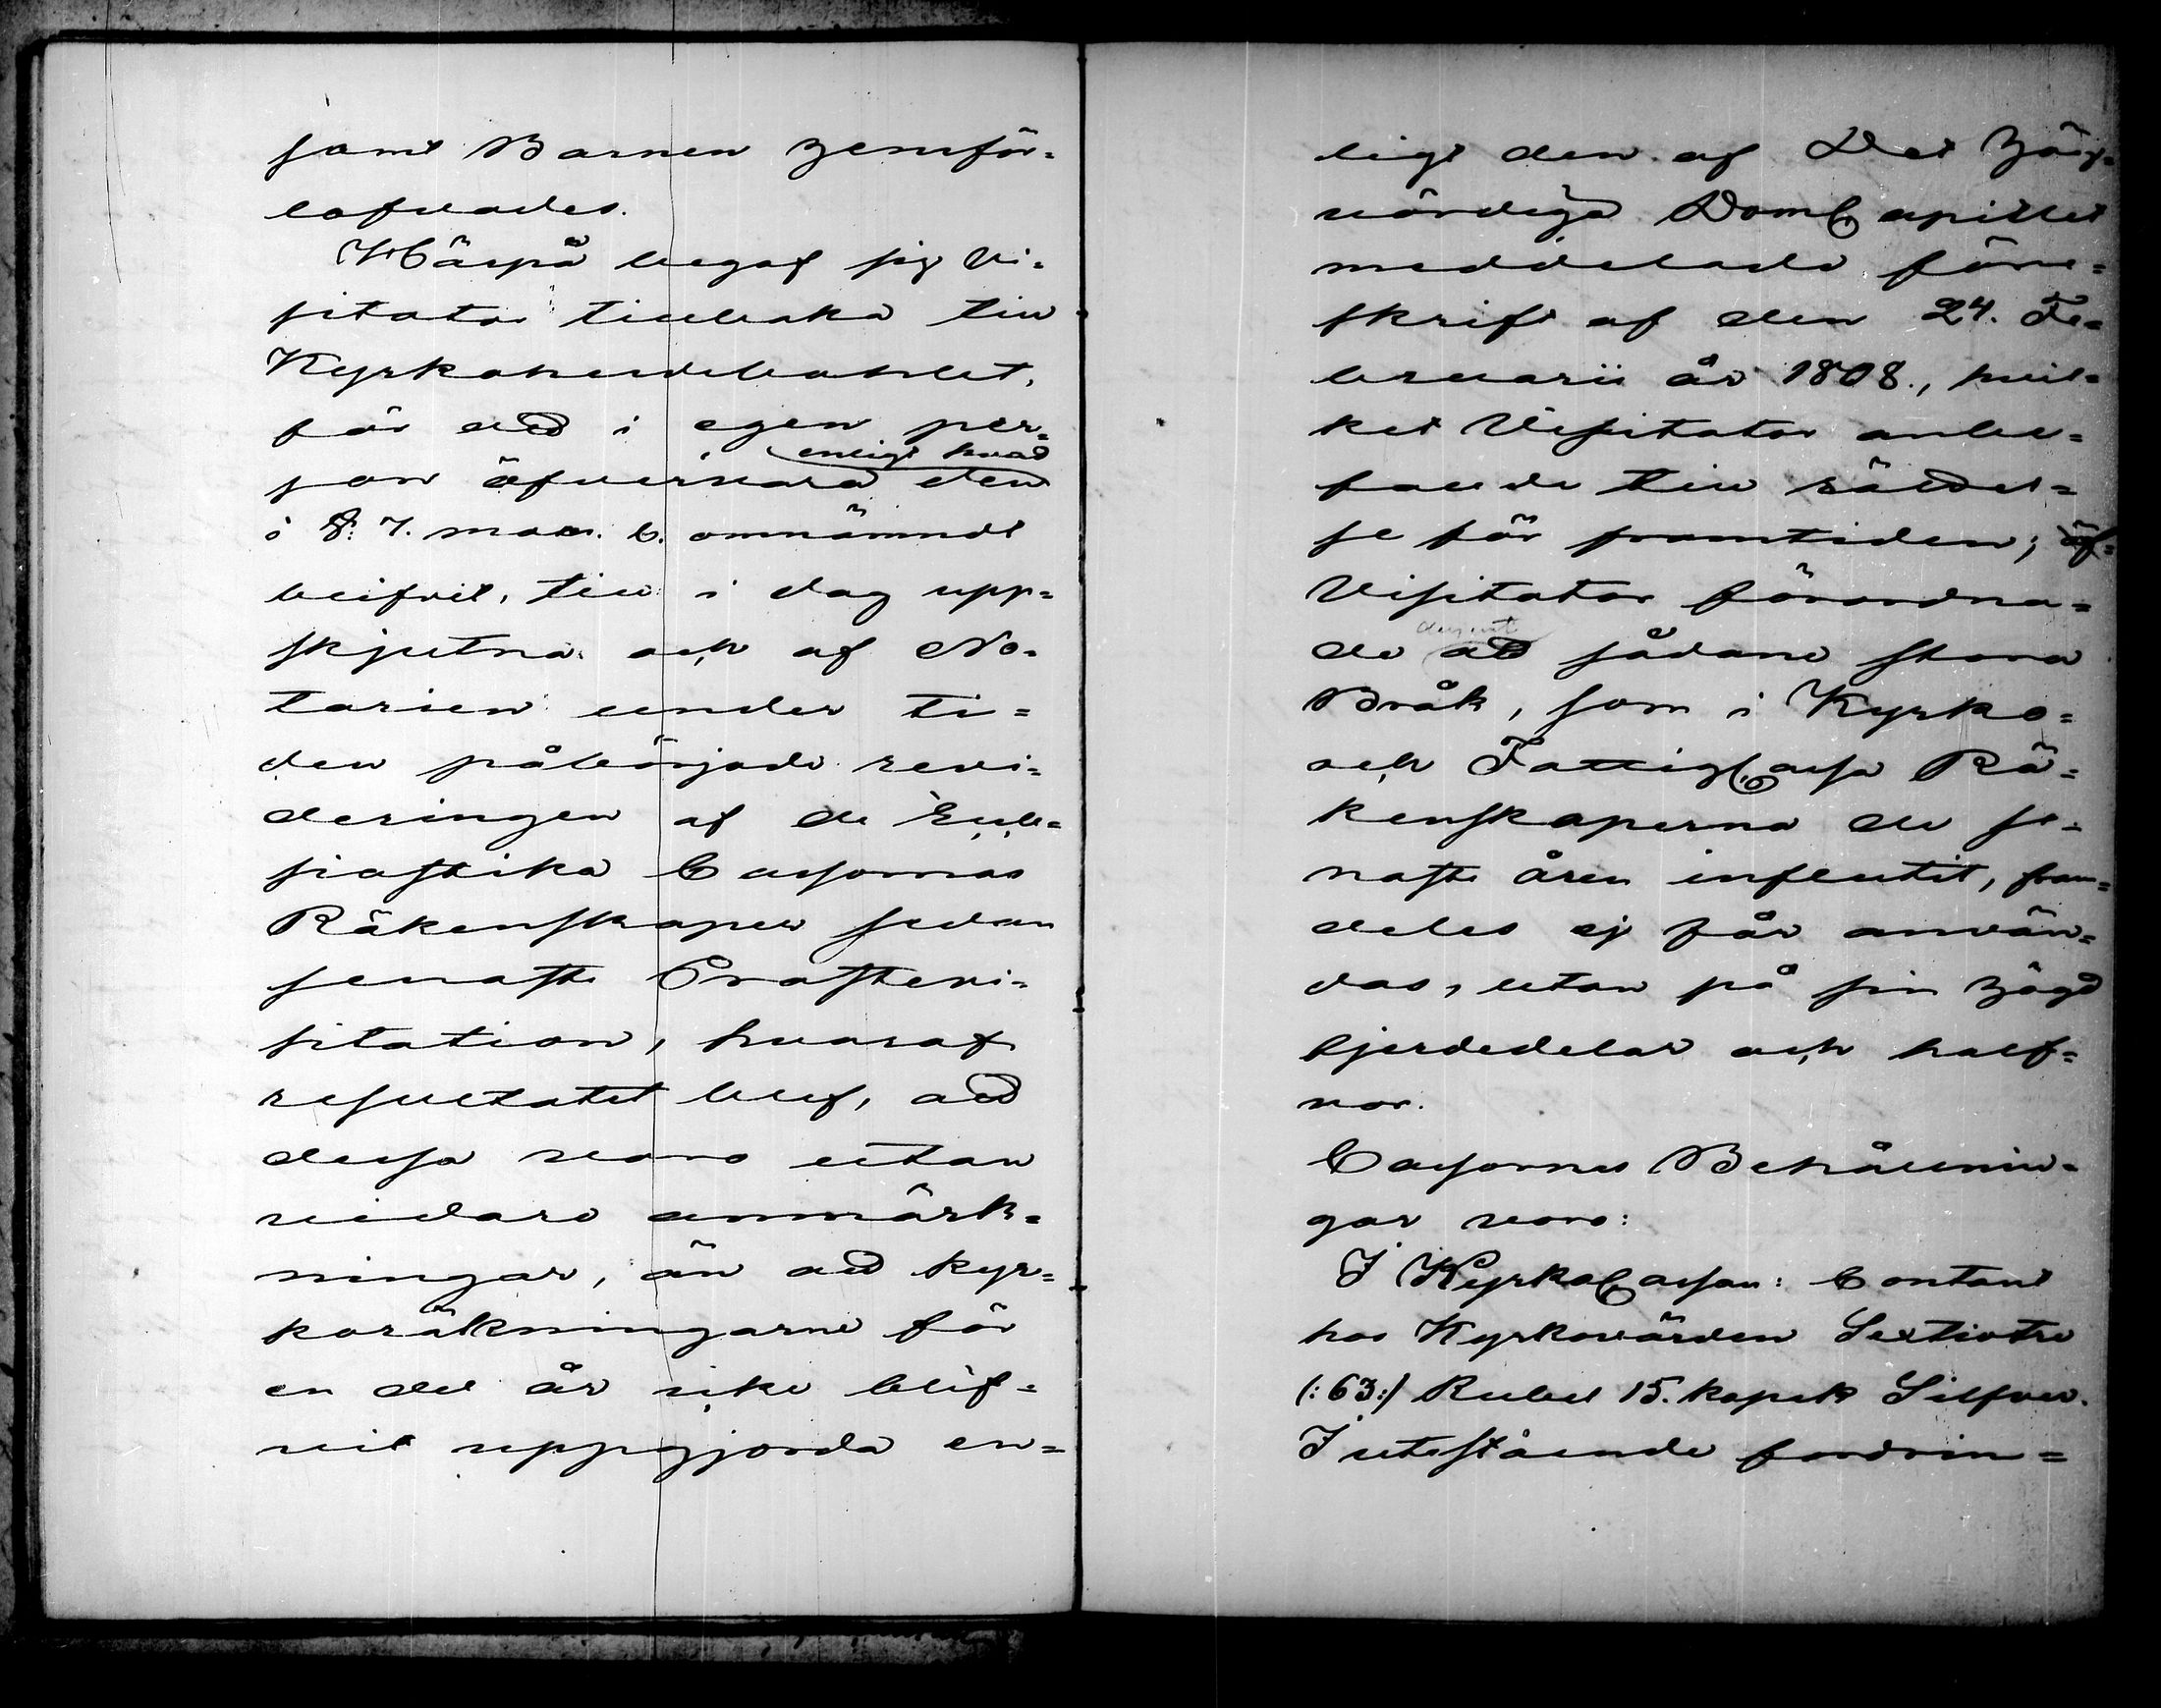 samt Barnen hemför=
lofvades.
Härpå begaf sig Vi=
sitator tillbaka till
Kyrkoherdebohlet,
för att i egen per=
enligt hvad
son öfvervara den
i §: 7. mom. C. omnämndt
blifvit, till i dag upp=
skjutna och af No=
tarien under ti=
den påbörjade revi=
deringen af de Eccle=
siastika Cassornas
Räkenskaper sedan
senaste Prostevi=
sitation, hvaraf
resultatet blef, att
dessa voro utan
vidare anmärk=
ningar, än att kyr=
koräkningarne för
en del år icke blif=
vit uppgjorda en=
ligt den af Det Hög=
värdiga DomCapitlet
meddelade före=
skrift af den 24. Fe=
bruarii år 1808., hvil=
ket Visitator anbe=
fallde till rättel=
se för framtiden; öf=
Visitator förordna=
de att sådane stora
Bråk, som i Kyrko=
och FattigCassa Rä=
kenskaperna de se=
naste åren influtit, fram=
deles ej får använ=
das, utan på sin högd
fjerdedelar och half=
vor.
Cassornes Behållnin=
gar voro:
I KyrkoCassan: Contant
hos Kyrkovärden Sextiotre
(:63:) Rubel 15. kopek Silfver.
I utestående fordrin=